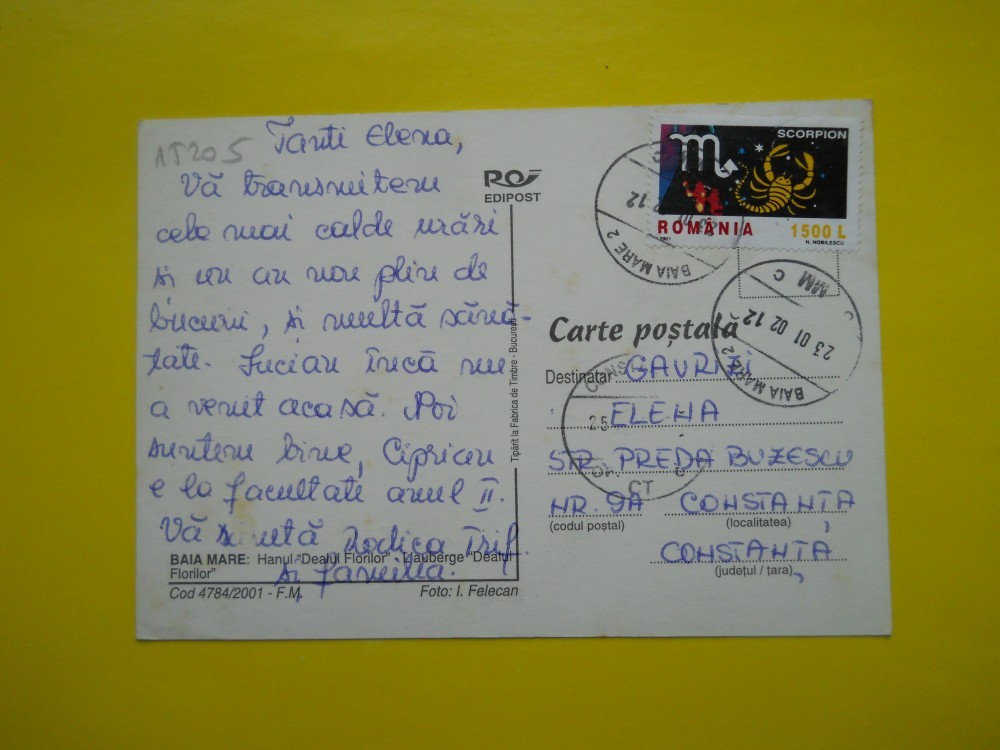 15205
Tanti Elena,
Vă transmitem
cele mai calde urări
și un an nou plin de
bucurii, și multă sănă-
tate. Lucian încă nu
a venit acasă. Noi
suntem bine, Ciprian
e la facultate anul II.
Vă sărută Rodica Trif
și familia.
BAIA MARE: Hanul "Dealul Florilor" - L'auberge "Dealul
Florilor"
Cod 4784/2001 - F.M.
Foto: I. Felecan
EDIPOST
Tipărit la Fabrica de Timbre - București
SCORPION
ROMÂNIA
1500 L
2001
N. NOBILESCU
BAIA MARE 2
MM C
23 01 02 12
BAIA MARE 2
Carte poștală
Destinatar GAVRIZI
ELENA
STR. PREDA BUZESCU
NR. 9A CONSTANȚA
(codul poștal) (localitatea)
CONSTANȚA
(județul / țara)
25
CT